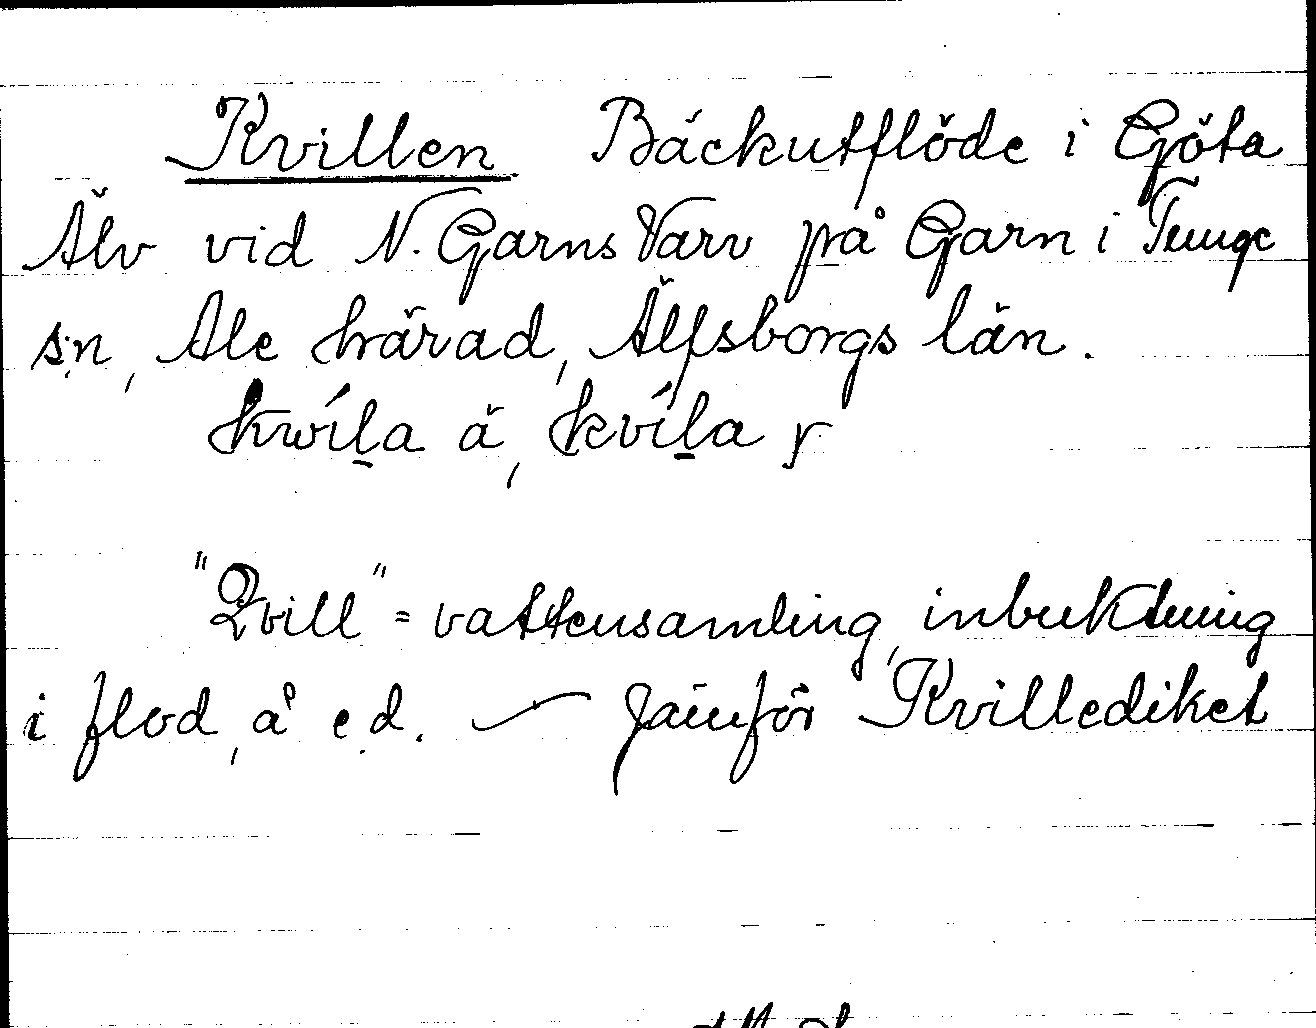 Kvillen Bäckutflöde i Göta
Älv vid N. Garns Varv på Garn i Tunge
s:n, Ale härad, Älfsborgs län.
kwíḻa ä, kvíḻa r
"Qvill" = vattensamling, inbuktning
i flod, å e.d. — Jämför Kvillediket